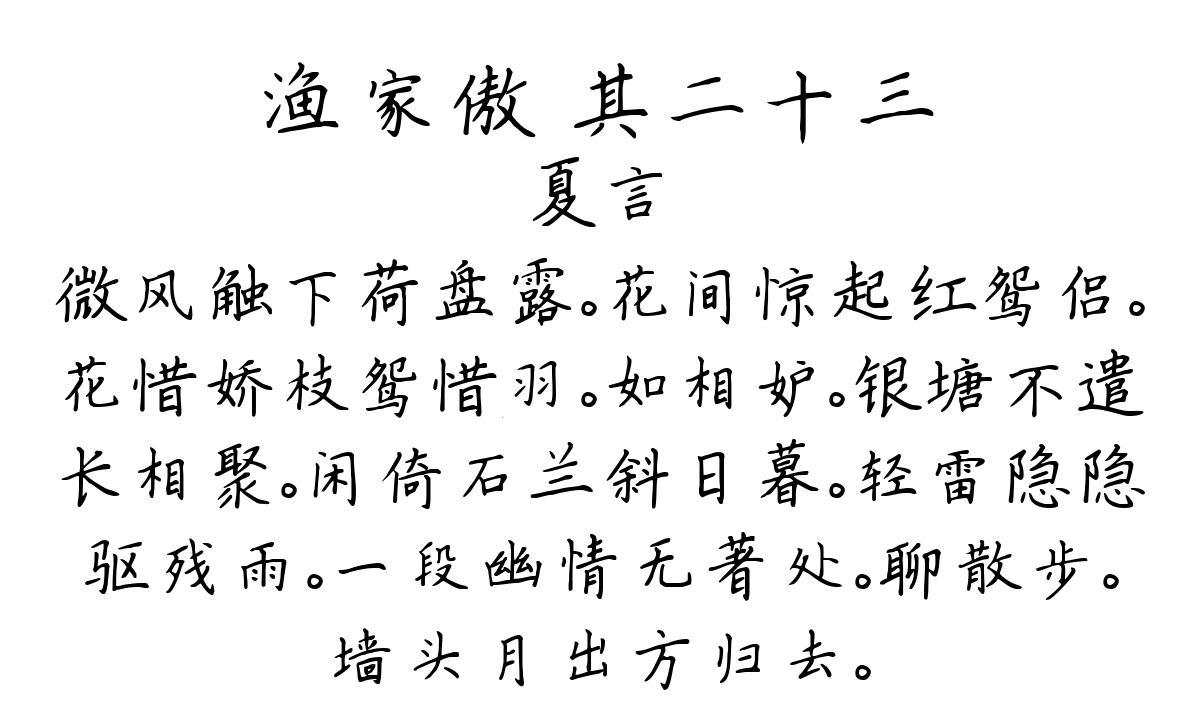 渔家傲 其二十三
夏言
微风触下荷盘露。花间惊起红鸳侣。
花惜娇枝鸳惜羽。如相妒。银塘不遣
长相聚。闲倚石兰斜日暮。轻雷隐隐
驱残雨。一段幽情无著处。聊散步。
墙头月出方归去。